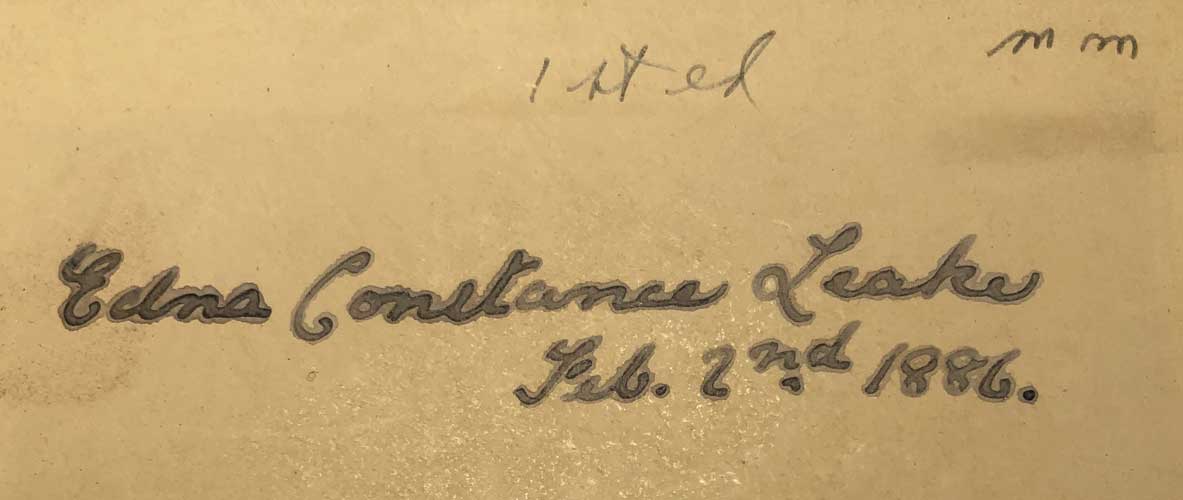 m m
1st ed
Edna Constance Leake
Feb. 2nd 1886.